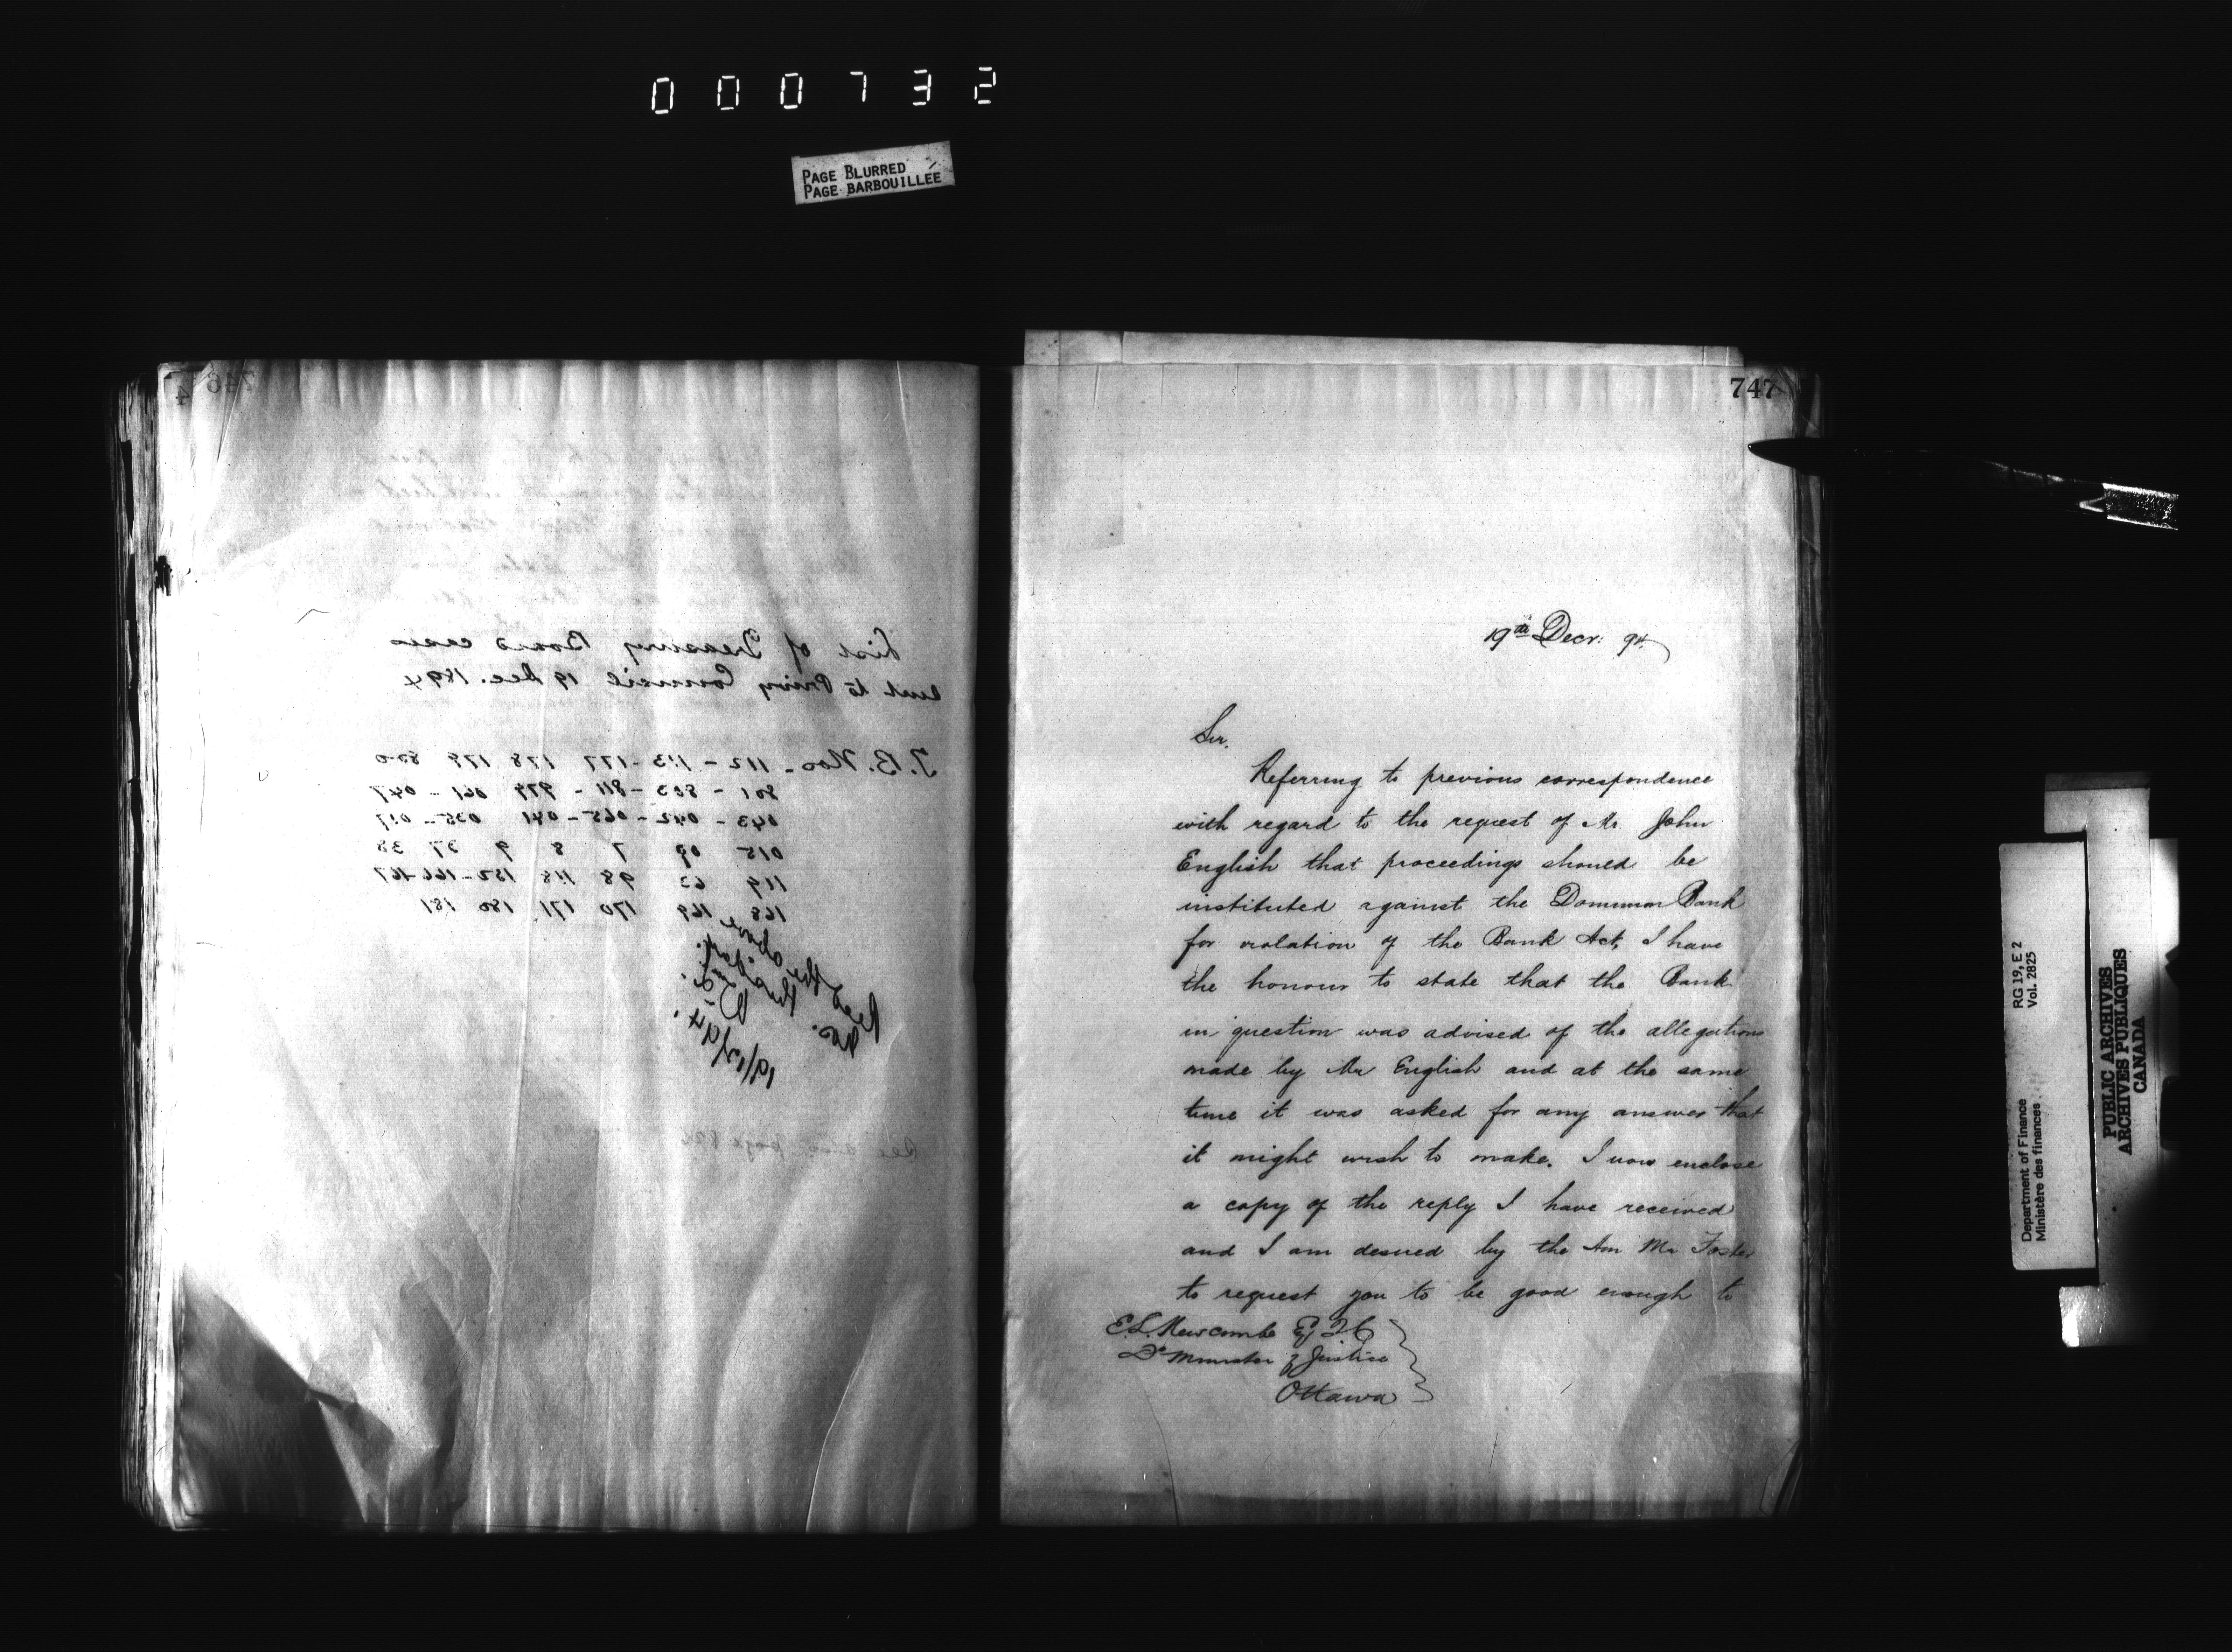 000732
PAGE BLURRED
PAGE BARBOUILLÉE
746
List of Treasury Board cases
sent to Privy Council 19 Dec. 1894
T.B. Nos - 112 - 113 - 177 178 179
801 - 803 - 811 - 979 061 - 047
043 - 042 - 065 - 041 035 - 017
015 09 7 8 9 37 38
119 63 98 118 152 - 166 - 167
168 169 170 171 180 181
Recd the above
19/12/94.
See also page
747
19th Decr. 94
Sir,
Referring to previous correspondence
with regard to the request of Mr. John
English that proceedings should be
instituted against the Dominion Bank
for violation of the Bank Act, I have
the honour to state that the Bank
in question was advised of the allegations
made by Mr English and at the same
time it was asked for any answer that
it might wish to make. I now enclose
a copy of the reply I have received
and I am desired by the Hon Mr Foster
to request you to be good enough to
E.L. Newcombe Esq Q.C.
Dy Minister of Justice
Ottawa
Department of Finance RG 19, E 2
Ministère des finances Vol. 2825
PUBLIC ARCHIVES
ARCHIVES PUBLIQUES
CANADA